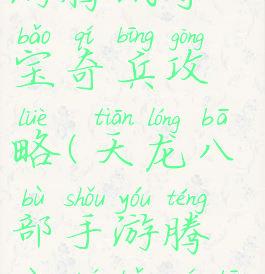 bǎo qí bīng gōng
宝奇兵攻
lüè tiān lóng bā
略(天龙八
bù shǒu yóu téng
部手游腾